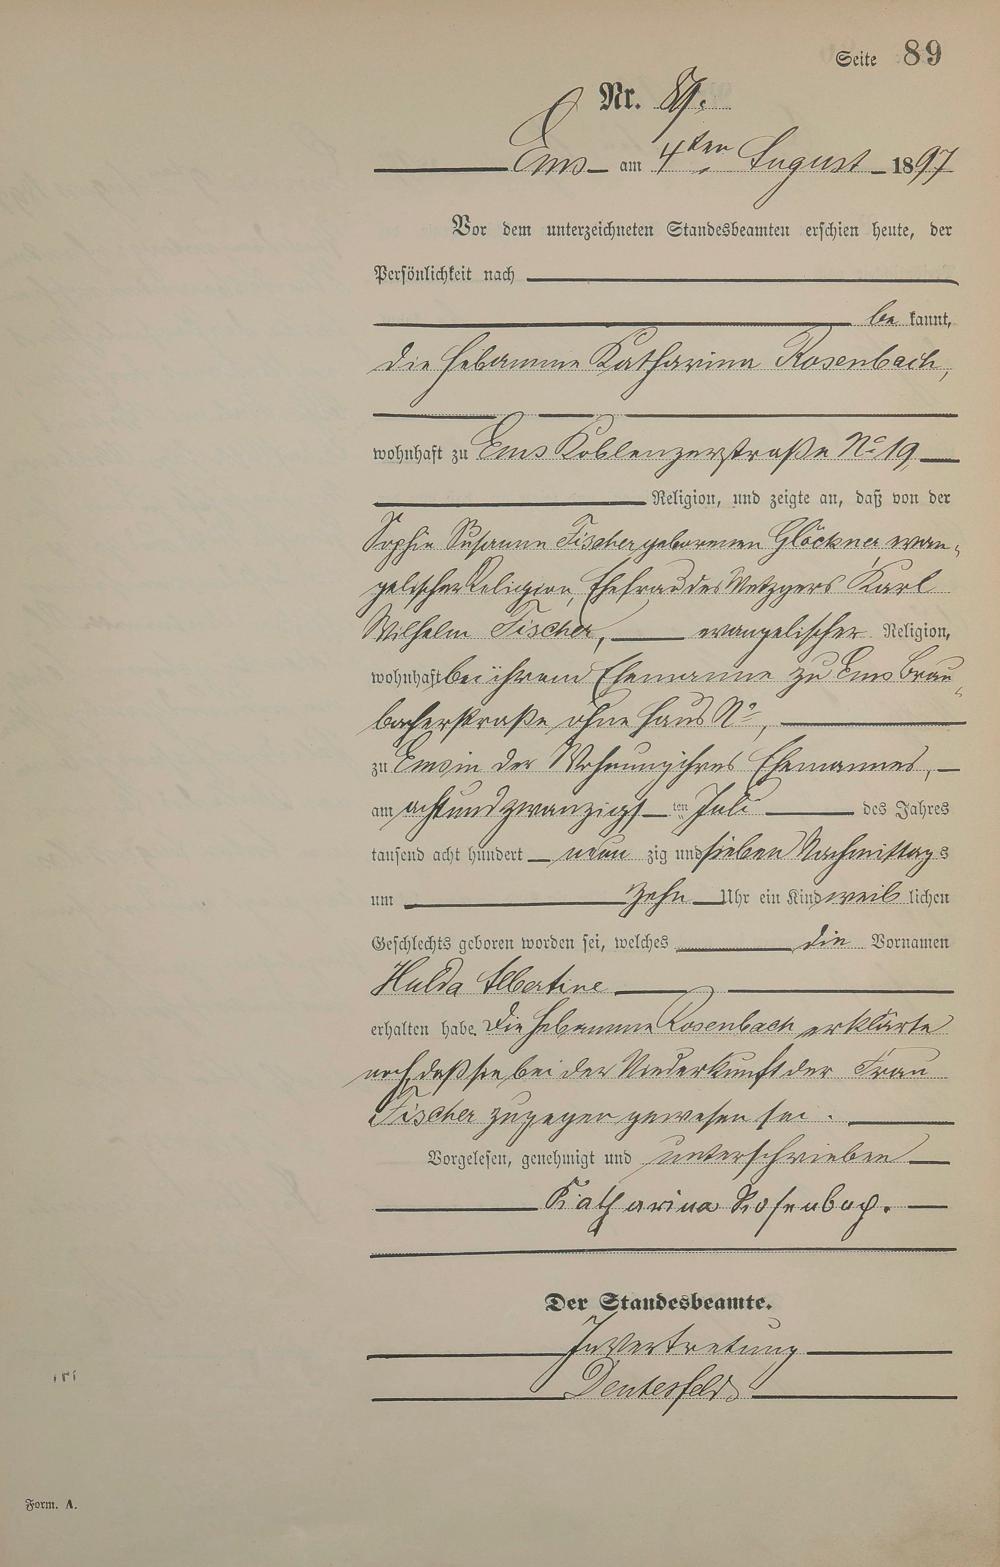 Seite 89
Nr. 89.
Ems am 4ten August 1897
Vor dem unterzeichneten Standesbeamten erschien heute, der
Persönlichkeit nach
be kannt,
die Hebamme Katharina Rosenbach,
wohnhaft zu Ems Koblenzerstraße No 19
Religion, und zeigte an, daß von der
Sophie Susanne Fischer geborenen Glöckner, evan-
gelischer Religion, Ehefrau des Metzgers Karl
Wilhelm Fischer, evangelischer Religion,
wohnhaft bei ihrem Ehemanne zu Ems Brau-
bacherstraße ohne Haus No,
zu Ems in der Wohnung ihres Ehemannes,
am achtundzwanzigsten Juli des Jahres
tausend acht hundert neun zig und sieben Nachmittags
um zehn Uhr ein Kind weib lichen
Geschlechts geboren worden sei, welches die Vornamen
Hulda Albertine
erhalten habe. Die Hebamme Rosenbach erklärte
noch, daß sie bei der Niederkunft der Frau
Fischer zugegen gewesen sei.
Vorgelesen, genehmigt und unterschrieben
Katharina Rosenbach.
Der Standesbeamte.
In Vertretung
Form. A.